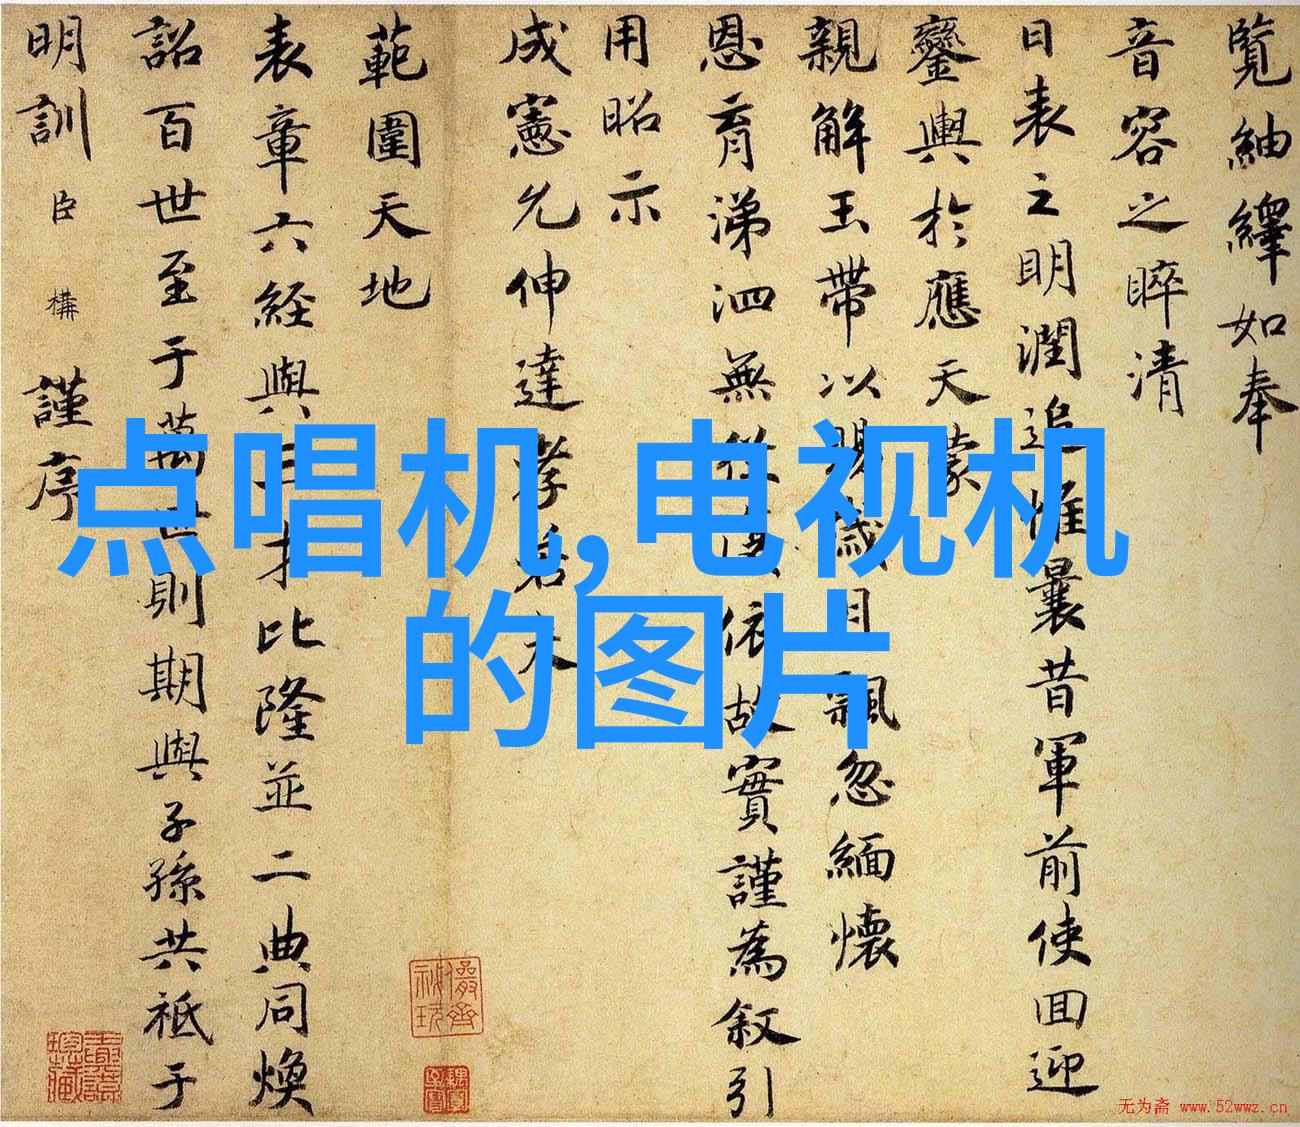 覽紬繹如奉
音容之睟清
日表之明潤追惟曩昔軍前使回迎
鑾輿於應天蒙
親解玉帶以賜歲月飄忽緬懷
恩育涕泗無從具依故實謹為叙引
用昭示
成憲允伸達孝若夫
範圍天地
表章六経與三才比隆並二典同煥
詔百世至于萬世則期與子孫共祗于
明訓臣構謹序
点唱机,电视机
的图片
无为斋 www.52wwz.cn